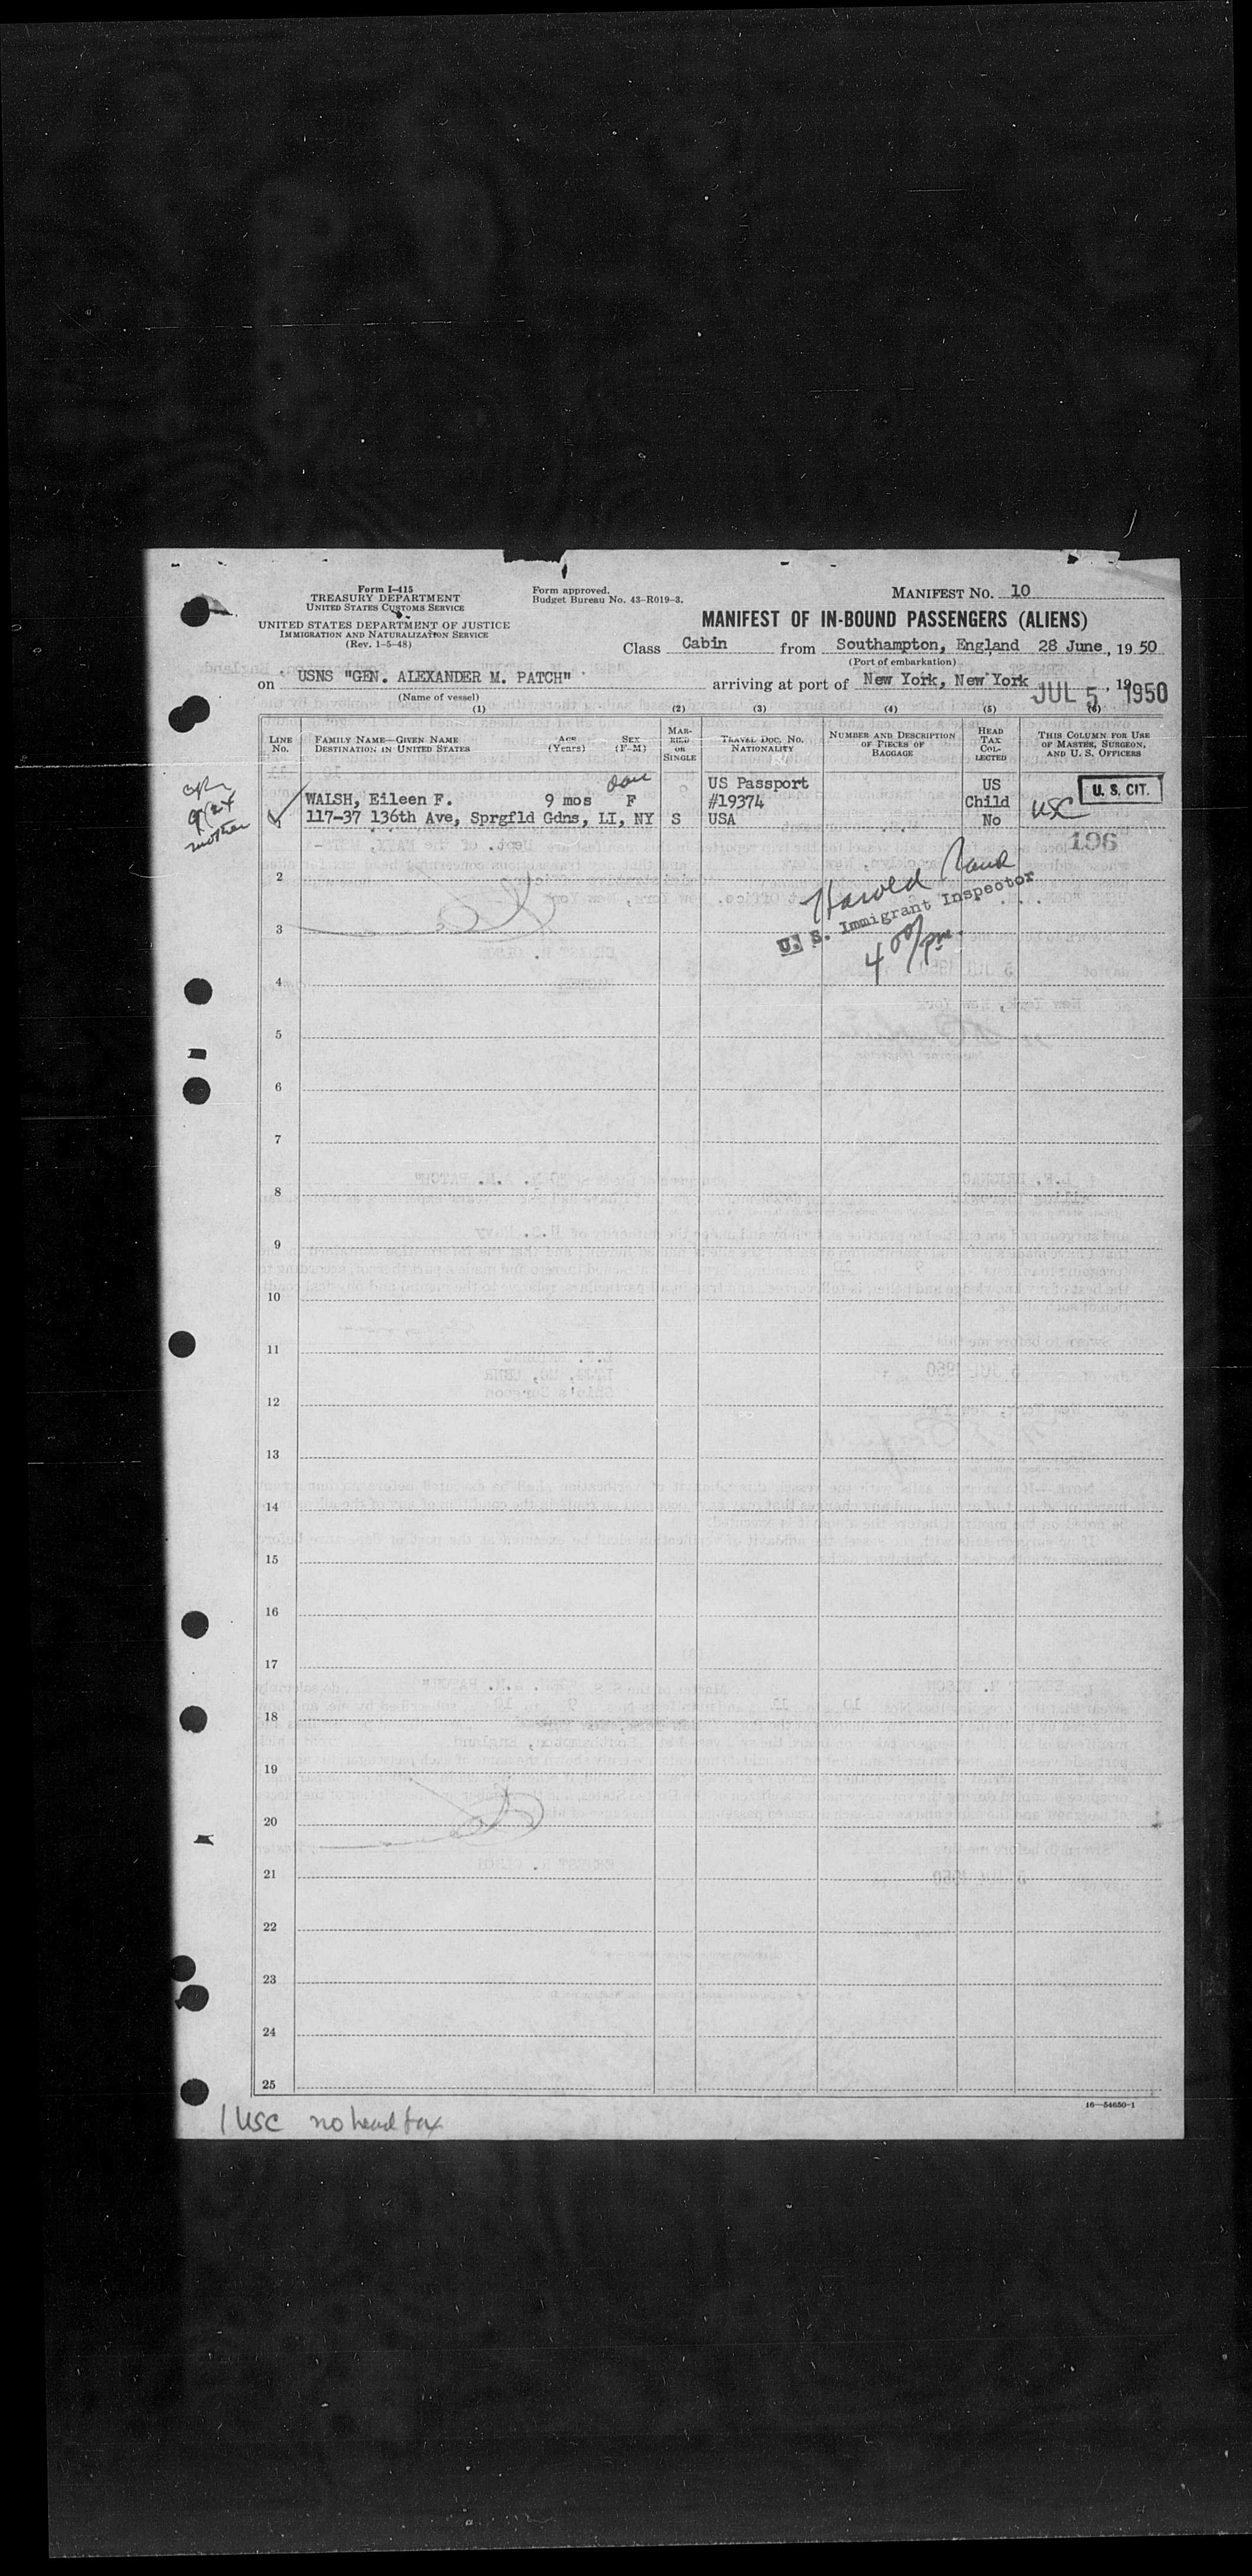 Form I-415
TREASURY DEPARTMENT
UNITED STATES CUSTOMS SERVICE
UNITED STATES DEPARTMENT OF JUSTICE
IMMIGRATION AND NATURALIZATION SERVICE
(Rev. 1-5-48)
Form approved.
Budget Bureau No. 43-R019-3.
MANIFEST NO. 10
MANIFEST OF IN-BOUND PASSENGERS (ALIENS)
Class Cabin from Southampton, England 28 June, 1950
(Port of embarkation)
on USNS "GEN. ALEXANDER M. PATCH" arriving at port of New York, New York JUL 5, 19 1950
(Name of vessel)
(1) (2) (3) (4) (5) (6)
LINE NO.
FAMILY NAME—GIVEN NAME
DESTINATION IN UNITED STATES
AGE (Years)
SEX (F-M)
MARRIED OR SINGLE
TRAVEL DOC. NO.
NATIONALITY
NUMBER AND DESCRIPTION OF PIECES OF BAGGAGE
HEAD TAX COLLECTED
THIS COLUMN FOR USE OF MASTER, SURGEON, AND U. S. OFFICERS
US Passport US U. S. CIT.
WALSH, Eileen F. 9 mos F #19374 Child USC
117-37 136th Ave, Sprgfld Gdns, LI, NY S USA No
mother
196
2
Harold
U. S. Immigrant Inspector
3
4 00/pm.
4
5
6
7
8
9
10
11
12
13
14
15
16
17
18
19
20
21
22
23
24
25
16—54650-1
1 USC no head tax